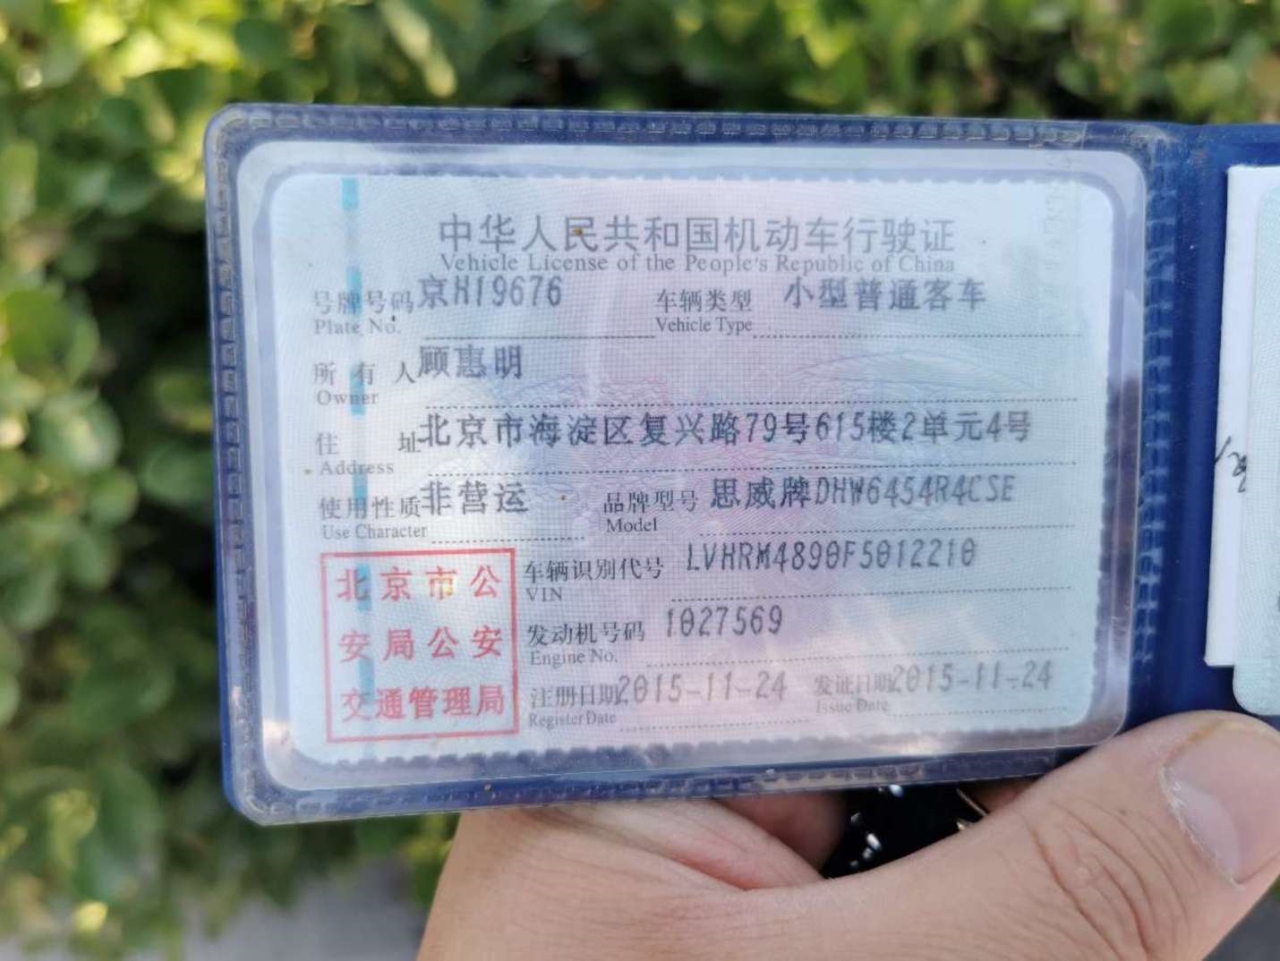 中华人民共和国机动车行驶证
Vehicle License of the People's Republic of China
号牌号码 京H19676 车辆类型 小型普通客车
Plate No. Vehicle Type
所有人 顾惠明
Owner
住址 北京市海淀区复兴路79号615楼2单元4号
Address
使用性质 非营运 品牌型号 思威牌DHW6454R4CSE
Use Character Model
车辆识别代号 LVHRM4890F5012210
VIN
发动机号码 1027569
Engine No.
注册日期 2015-11-24 发证日期 2015-11-24
Register Date Issue Date
北京市公
安局公安
交通管理局